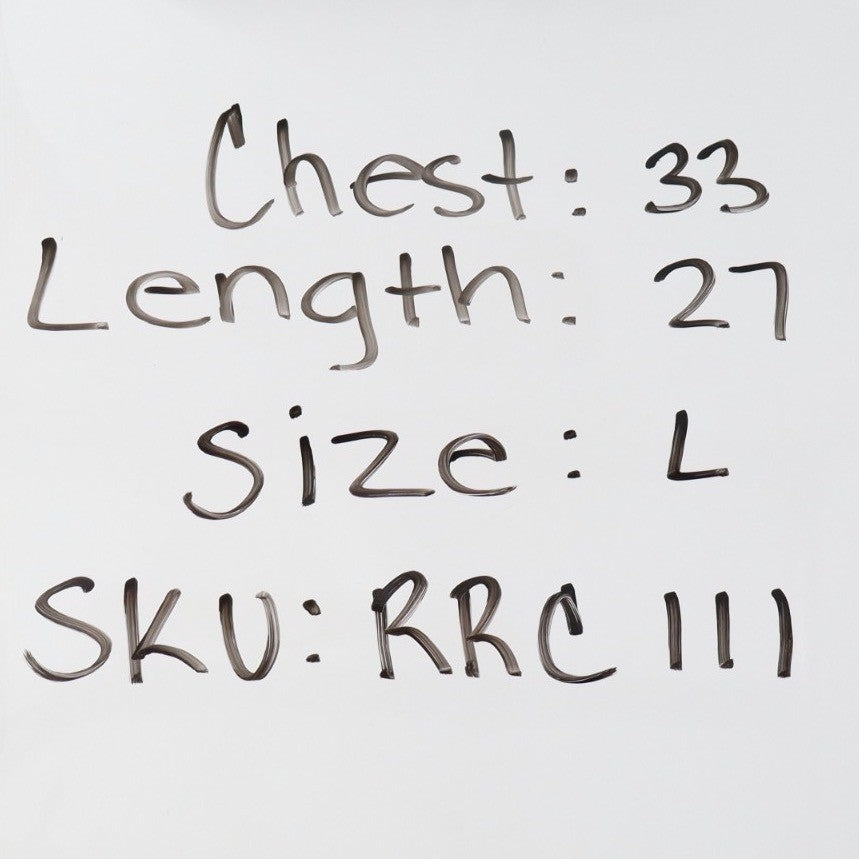 Chest: 33
Length: 27
Size: L
SKU: RRC 111